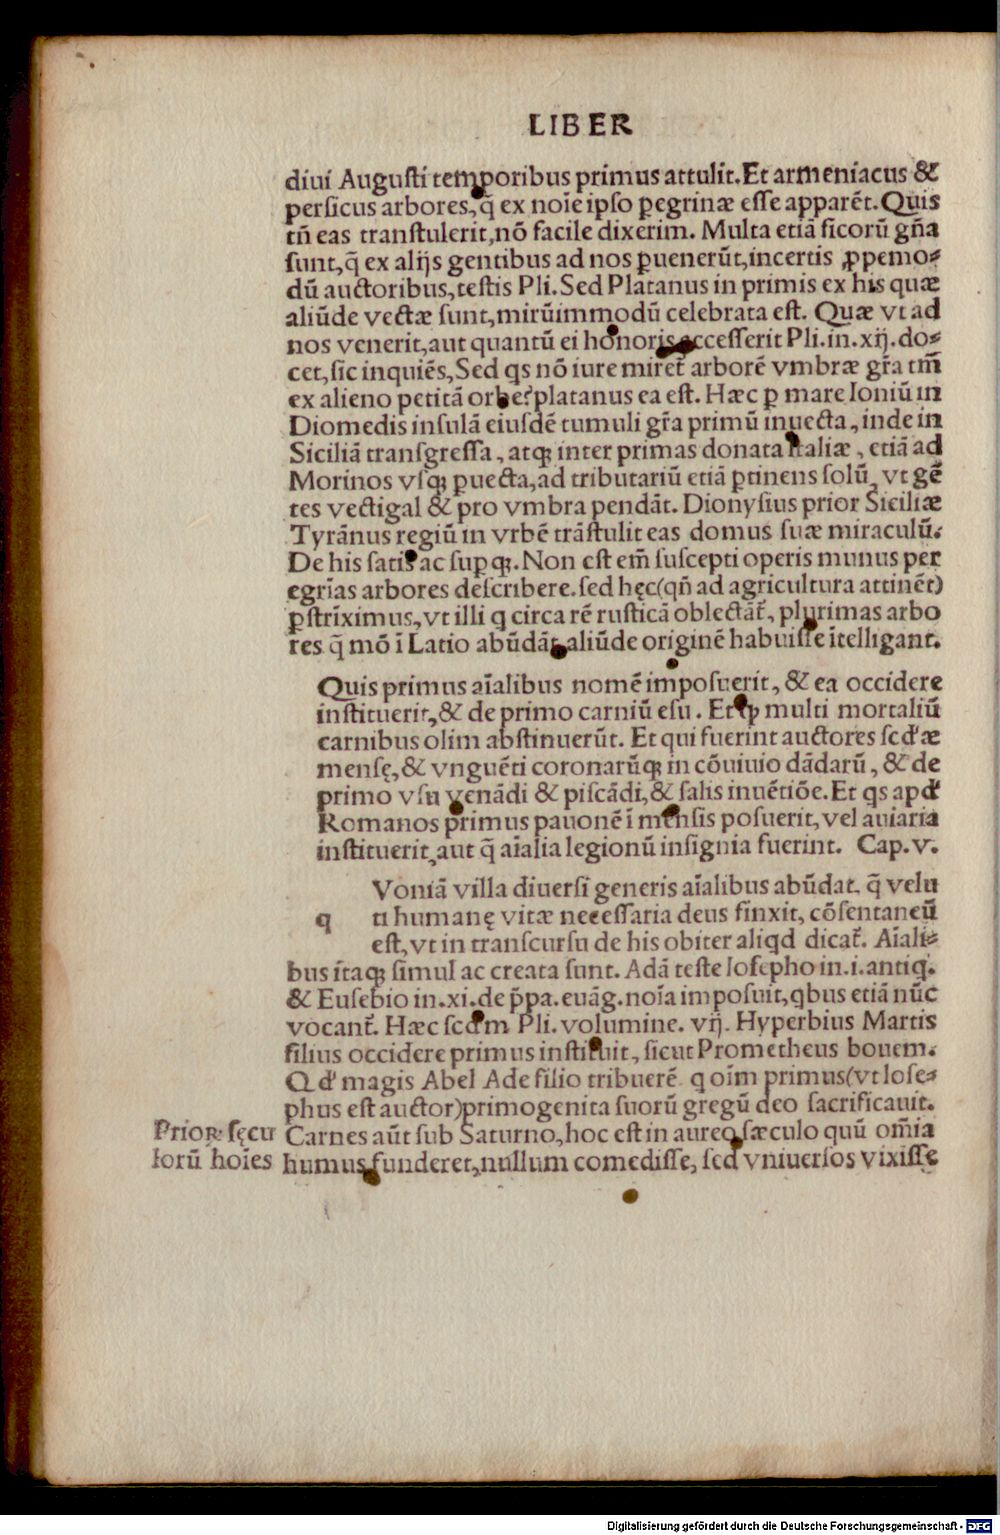 LIBER
diui Augusti temporibus primus attulit. Et armeniacus &
persicus arbores, q̃ ex noĩe ipso ꝑegrinæ esse apparẽt. Quis
tñ eas transtulerit, nõ facile dixerim. Multa etiã ficorũ gña
sunt, q̃ ex alijs gentibus ad nos ꝑuenerũt, incertis ꝓpemo⸗
dũ auctoribus, testis Pli. Sed Platanus in primis ex his quæ
aliũde vectæ sunt, mirũimmodũ celebrata est. Quæ vt ad
nos venerit, aut quantũ ei honoris accesserit Pli. in. xij. do⸗
cet, sic inquiẽs, Sed qs nõ iure miret̃ arborẽ vmbræ gr̃a tm̃
ex alieno petitã orbe? platanus ea est. Hæc ꝑ mare Ioniũ in
Diomedis insulã eiusdẽ tumuli gr̃a primũ inuecta, inde in
Siciliã transgressa, atqꝫ inter primas donata Italiæ, etiã ad
Morinos vsqꝫ ꝑuecta, ad tributariũ etiã ꝑtinens solũ, vt gẽ
tes vectigal & pro vmbra pendãt. Dionysius prior Siciliæ
Tyrãnus regiũ in vrbẽ trãstulit eas domus suæ miraculũ.
De his satis ac suꝑqꝫ. Non est em̃ suscepti operis munus per
egrĩas arbores describere. sed hęc (qñ ad agricultura attinẽt)
ꝑstrĩximus, vt illi q circa rẽ rusticã oblectãt̃, plurimas arbo
res q̃ mõ ĩ Latio abũdãt, aliũde originẽ habuisse ĩtelligant.
Quis primus aĩalibus nomẽ imposuerit, & ea occidere
instituerit, & de primo carniũ esu. Et ꝙ multi mortaliũ
carnibus olim abstinuerũt. Et qui fuerint auctores scd'æ
mensę, & vnguẽti coronarũqꝫ in cõuiuio dãdarũ, & de
primo vsu venãdi & piscãdi, & salis inuẽtiõe. Et qs apd'
Romanos primus pauonẽ ĩ mensis posuerit, vel auiaria
instituerit, aut q̃ aĩalia legionũ insignia fuerint. Cap. v.
Voniã villa diuersi generis aĩalibus abũdat. q̃ velu
q ti humanę vitæ necessaria deus finxit, cõsentaneũ
est, vt in transcursu de his obiter aliqd dicat̃. Aĩali⸗
bus ĩtaqꝫ simul ac creata sunt. Adã teste Iosepho in. i. antiq.
& Eusebio in. xi. de p̃pa. euãg. noĩa imposuit, qbus etiã nũc
vocant̃. Hæc scdm Pli. volumine. vij. Hyperbius Martis
filius occidere primus instituit, sicut Prometheus bouem.
Qd' magis Abel Ade filio tribuerẽ q oĩm primus (vt Iose⸗
phus est auctor) primogenita suorũ gregũ deo sacrificauit.
Prioꝝ sęcu Carnes aũt sub Saturno, hoc est in aureo sæculo quũ om̃ia
lorũ hoĩes humus funderet, nullum comedisse, sed vniuersos vixisse
Digitalisierung gefördert durch die Deutsche Forschungsgemeinschaft - DFG